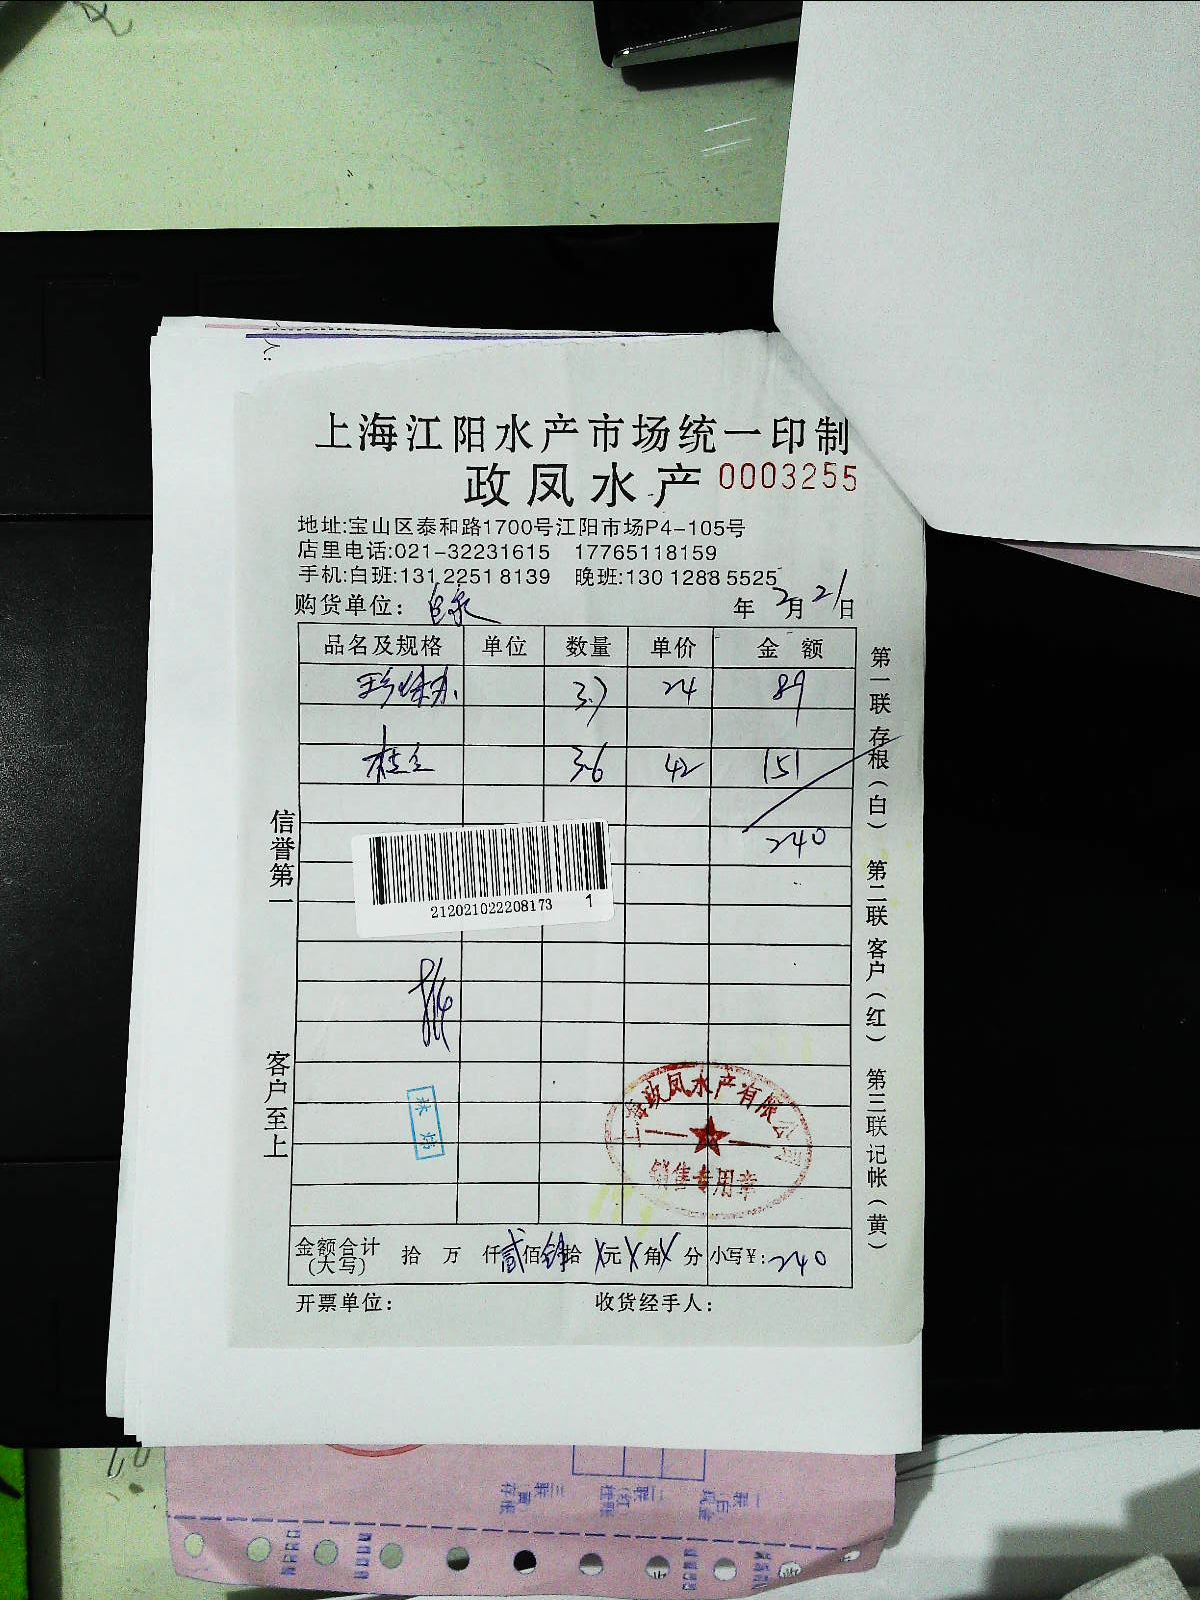 上海江阳水产市场统一印制
政凤水产 0003255
地址:宝山区泰和路1700号江阳市场P4-105号
店里电话:021-32231615 17765118159
手机:白班:131 2251 8139 晚班:130 1288 5525
购货单位: 年 2月21日
品名及规格 单位 数量 单价 金额
3.7 24 89
桂 3.6 42 151
240
212021022208173 1
信誉第一
客户至上
第一联存根(白) 第二联客户(红) 第三联记帐(黄)
上海政凤水产有限公司
销售专用章
金额合计(大写) 拾 万 仟贰佰肆拾X元X角X分 小写¥:240
开票单位: 收货经手人: